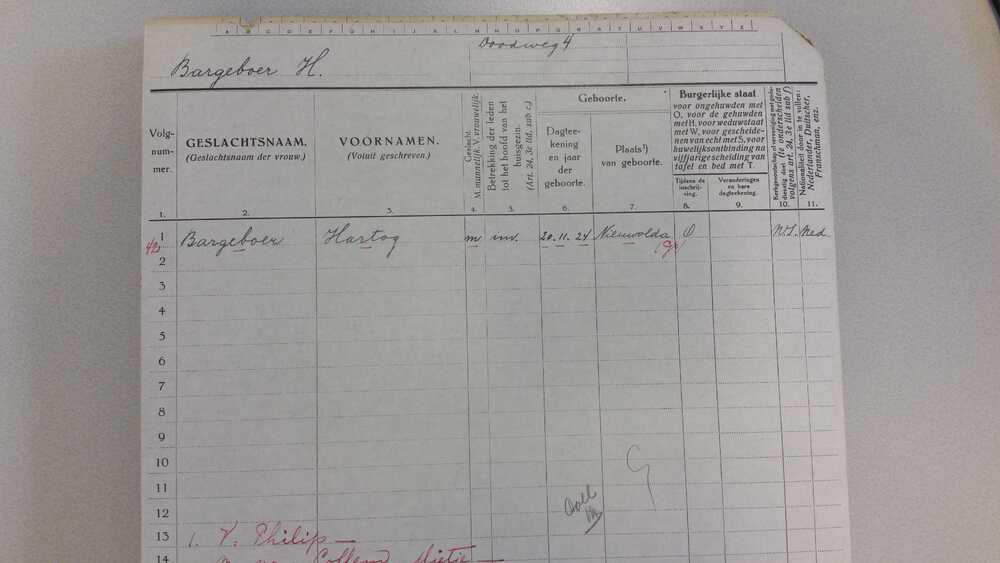 A B C D E F G H I J K L M N O P Q R S T U V W X Y Z
Bargeboer H.
Doodweg 4
Volg-
num-
mer.
GESLACHTSNAAM.
(Geslachtsnaam der vrouw.)
VOORNAMEN.
(Voluit geschreven.)
Geslacht.
M. mannelijk. V. vrouwelijk.
Betrekking der leden
tot het hoofd van het
huisgezin.
(Art. 24, 3e lid, sub c.)
Geboorte.
Dagtee-
kening
en jaar
der
geboorte.
Plaats¹)
van geboorte.
Burgerlijke staat
voor ongehuwden met
O, voor de gehuwden
met H, voor weduwstaat
met W, voor gescheide-
nen van echt met S, voor
huwelijksontbinding na
vijfjarige scheiding van
tafel en bed met T.
Tijdens de
inschrij-
ving.
Veranderingen
en hare
dagteekening.
volgens art. 24, 3e lid sub f)
Nationaliteit door in te vullen:
Nederlander, Duitscher,
Franschman, enz.
1. 2. 3. 4. 5. 6. 7. 8. 9. 10. 11.
1 Bargeboer Hartog m inv. 20.11.24 Nieuwolda O N.I. Ned
2
3
4
5
6
7
8
9
10
11
12
13 1. V. Philip —
14